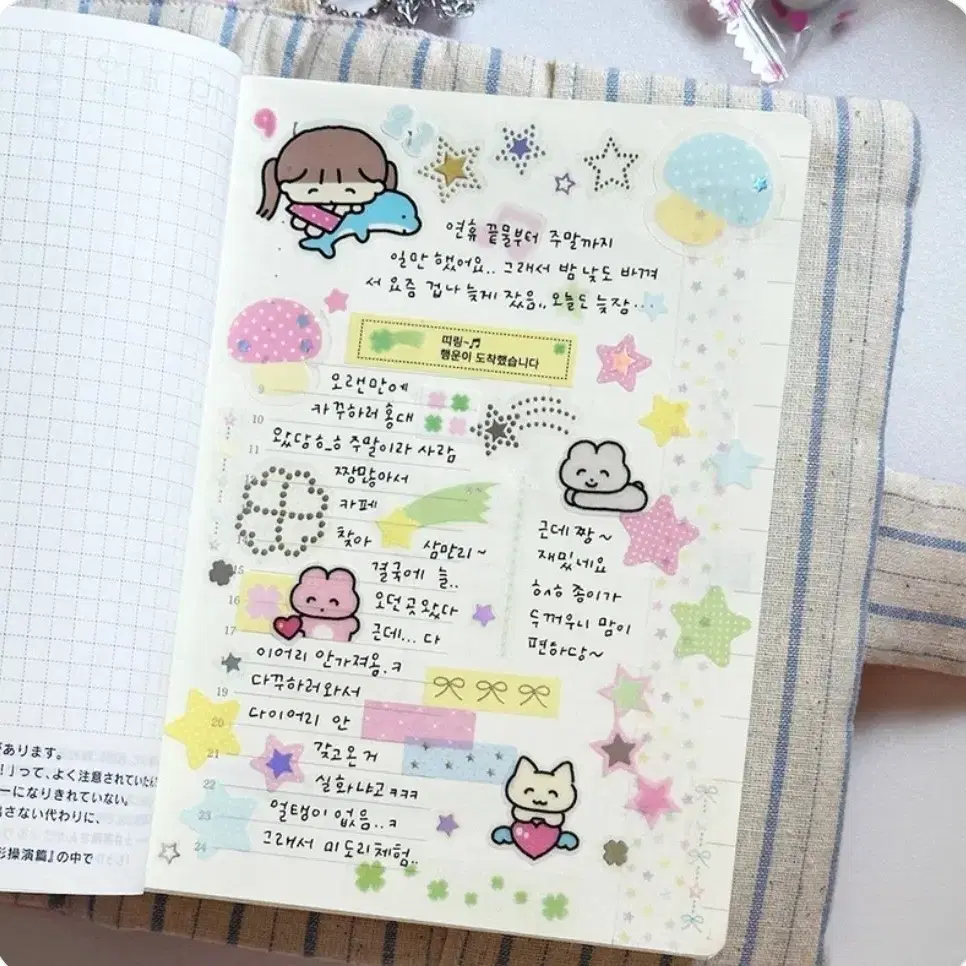 9
21
연휴 끝물부터 주말까지
일만 했어요.. 그래서 밤 낮도 바껴
서 요즘 겁나 늦게 잤음.. 오늘도 늦잠...
띠링~♬
행운이 도착했습니다
9
오랜만에
10
카꾸하러 홍대
11
왔당ㅎ_ㅎ 주말이라 사람
짱많아서
카페
14
찾아 삼만리~
15
결국에 늘..
16
오던곳왔다
17
근데... 다
이어리 안가져옴.ㅋ
19
다꾸하러와서
20
다이어리 안
21
갖고온거
22
실화냐고ㅋㅋㅋ
23
얼탱이 없음..ㅋ
24
그래서 미도리체험..
근데 짱~
재밌네요
ㅎㅅㅎ 종이가
두꺼우니 맘이
편하당~
があります。
!」って、よく注意されていた
ーになりきれていない。
る代わりに、
操演篇』の中で